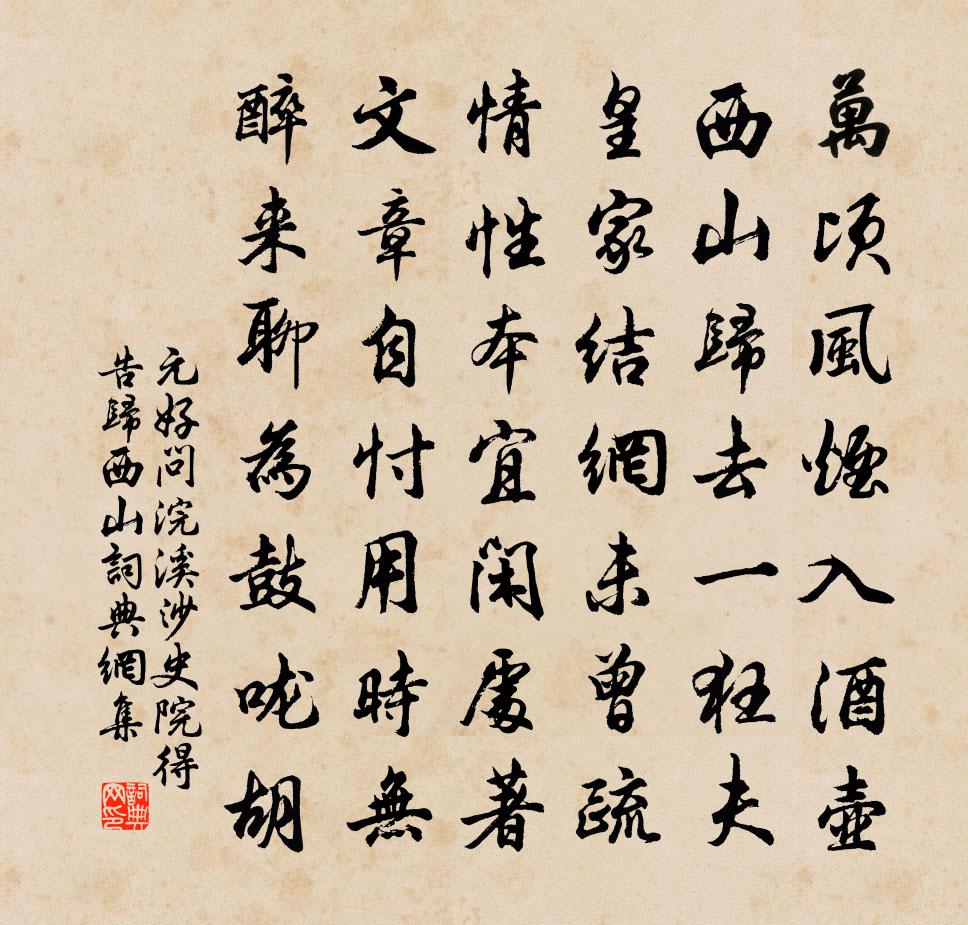 萬頃風煙入酒壺
西山歸去一狂夫
皇家結網未曾疏
情性本宜閑處著
文章自忖用時無
醉来聊為鼓咙胡
元好問浣溪沙史院得
告歸西山詞典網集
詞典
网印